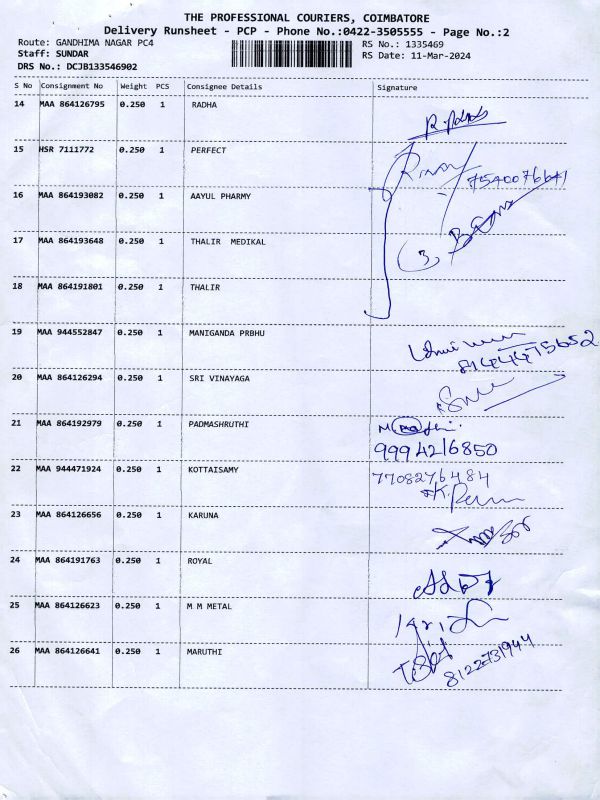 THE PROFESSIONAL COURIERS, COIMBATORE
Delivery Runsheet - PCP - Phone No.:0422-3505555 - Page No.:2
Route: GANDHIMA NAGAR PC4 RS No.: 1335469
Staff: SUNDAR RS Date: 11-Mar-2024
DRS No.: DCJB133546902
S No Consignment No Weight PCS Consignee Details Signature
14 MAA 864126795 0.250 1 RADHA
15 HSR 7111772 0.250 1 PERFECT
7540076641
16 MAA 864193082 0.250 1 AAYUL PHARMY
17 MAA 864193648 0.250 1 THALIR MEDIKAL
3,
18 MAA 864191801 0.250 1 THALIR
19 MAA 944552847 0.250 1 MANIGANDA PRBHU
20 MAA 864126294 0.250 1 SRI VINAYAGA
21 MAA 864192979 0.250 1 PADMASHRUTHI
9994216850
22 MAA 944471924 0.250 1 KOTTAISAMY 7708276484
23 MAA 864126656 0.250 1 KARUNA
24 MAA 864191763 0.250 1 ROYAL
25 MAA 864126623 0.250 1 M M METAL
26 MAA 864126641 0.250 1 MARUTHI 8122731944